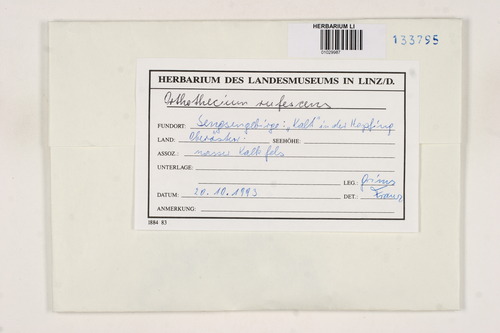 HERBARIUM LI
01029987
133795
HERBARIUM DES LANDESMUSEUMS IN LINZ/D.
Orthothecium rufescens
FUNDORT: Sengsengebirge: "Kalt" in der Hopfing
LAND: Oberösterr. SEEHÖHE:
ASSOZ.: nasser Kalkfels
UNTERLAGE:
LEG.: Grims
DATUM: 20.10.1993 DET.: Franz
ANMERKUNG:
I884 83